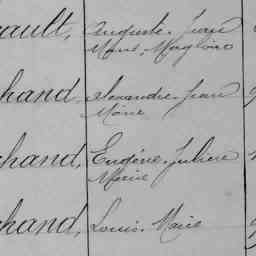 ault, Auguste Jean
Marie Magloire
hand, Alexandre Jean
Marie
hand, Eugénie Julienne
Marie
hand, Louis Marie